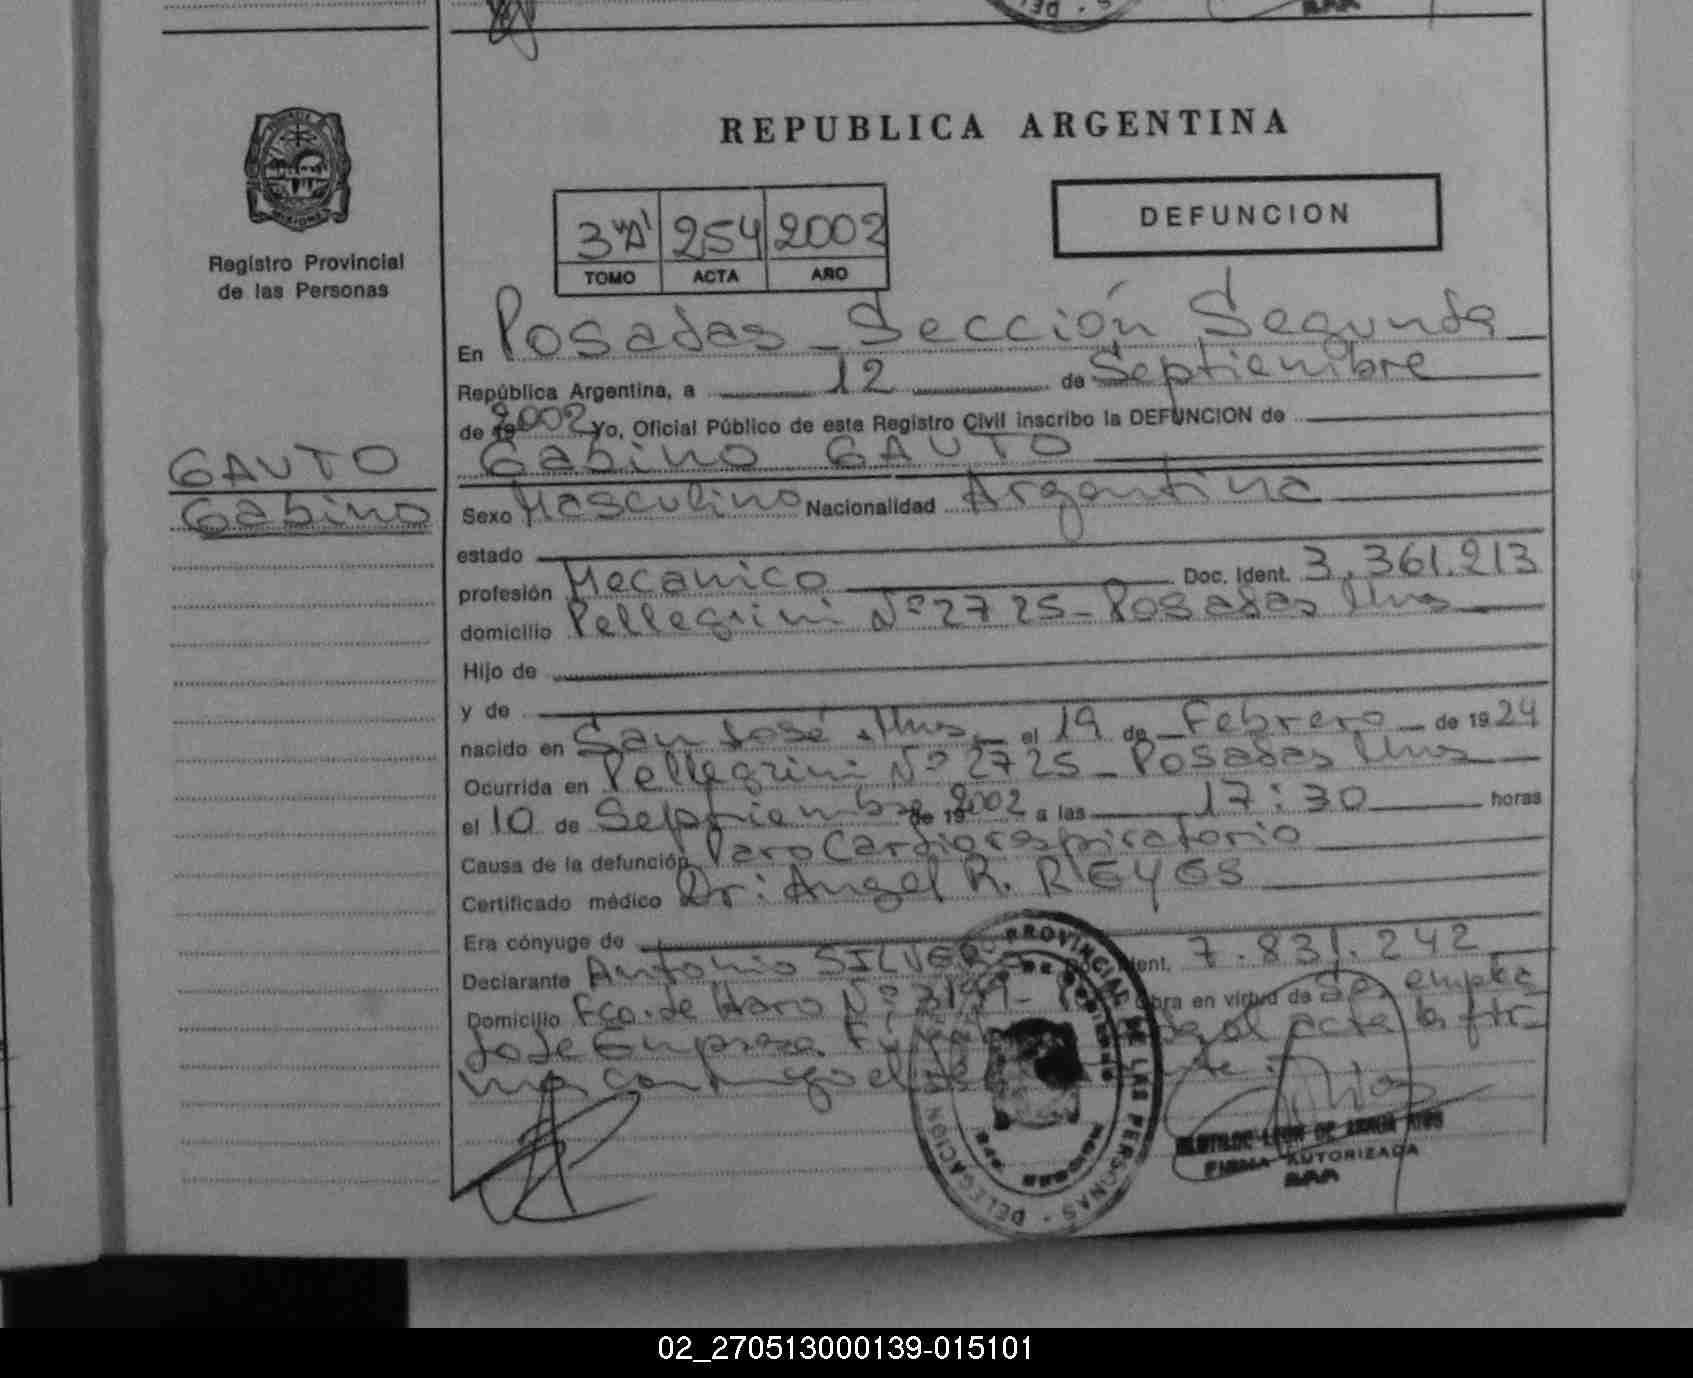 REPUBLICA ARGENTINA
Registro Provincial
de las Personas
3 "A" 254 2002
TOMO ACTA AÑO
DEFUNCION
En Posadas - Sección Segunda
República Argentina, a 12 de Septiembre
de 19 2002 Yo, Oficial Público de este Registro Civil inscribo la DEFUNCION de
Gabino GAUTO
GAUTO
Gabino
Sexo Masculino Nacionalidad Argentina
estado
profesión Mecanico Doc. Ident. 3.361.213
domicilio Pellegrini Nº 2725 - Posadas Mnes
Hijo de
y de
nacido en San José Mnes el 19 de Febrero de 1924
Ocurrida en Pellegrini Nº 2725 - Posadas Mnes
el 10 de Septiembre de 19 2002 a las 17:30 horas
Causa de la defunción Paro Cardiorespiratorio
Certificado médico Dr: Angel R. REYES
Era cónyuge de
Declarante Antonio Ident. 7.831.242
Domicilio Fco. de Haro Nº Obra en virtud de Ser emplea
do de Empresa acta la fir
ma conmigo el
PROVINCIAL DE LAS PERSONAS - DELEGACION
FIRMA AUTORIZADA
02_270513000139-015101